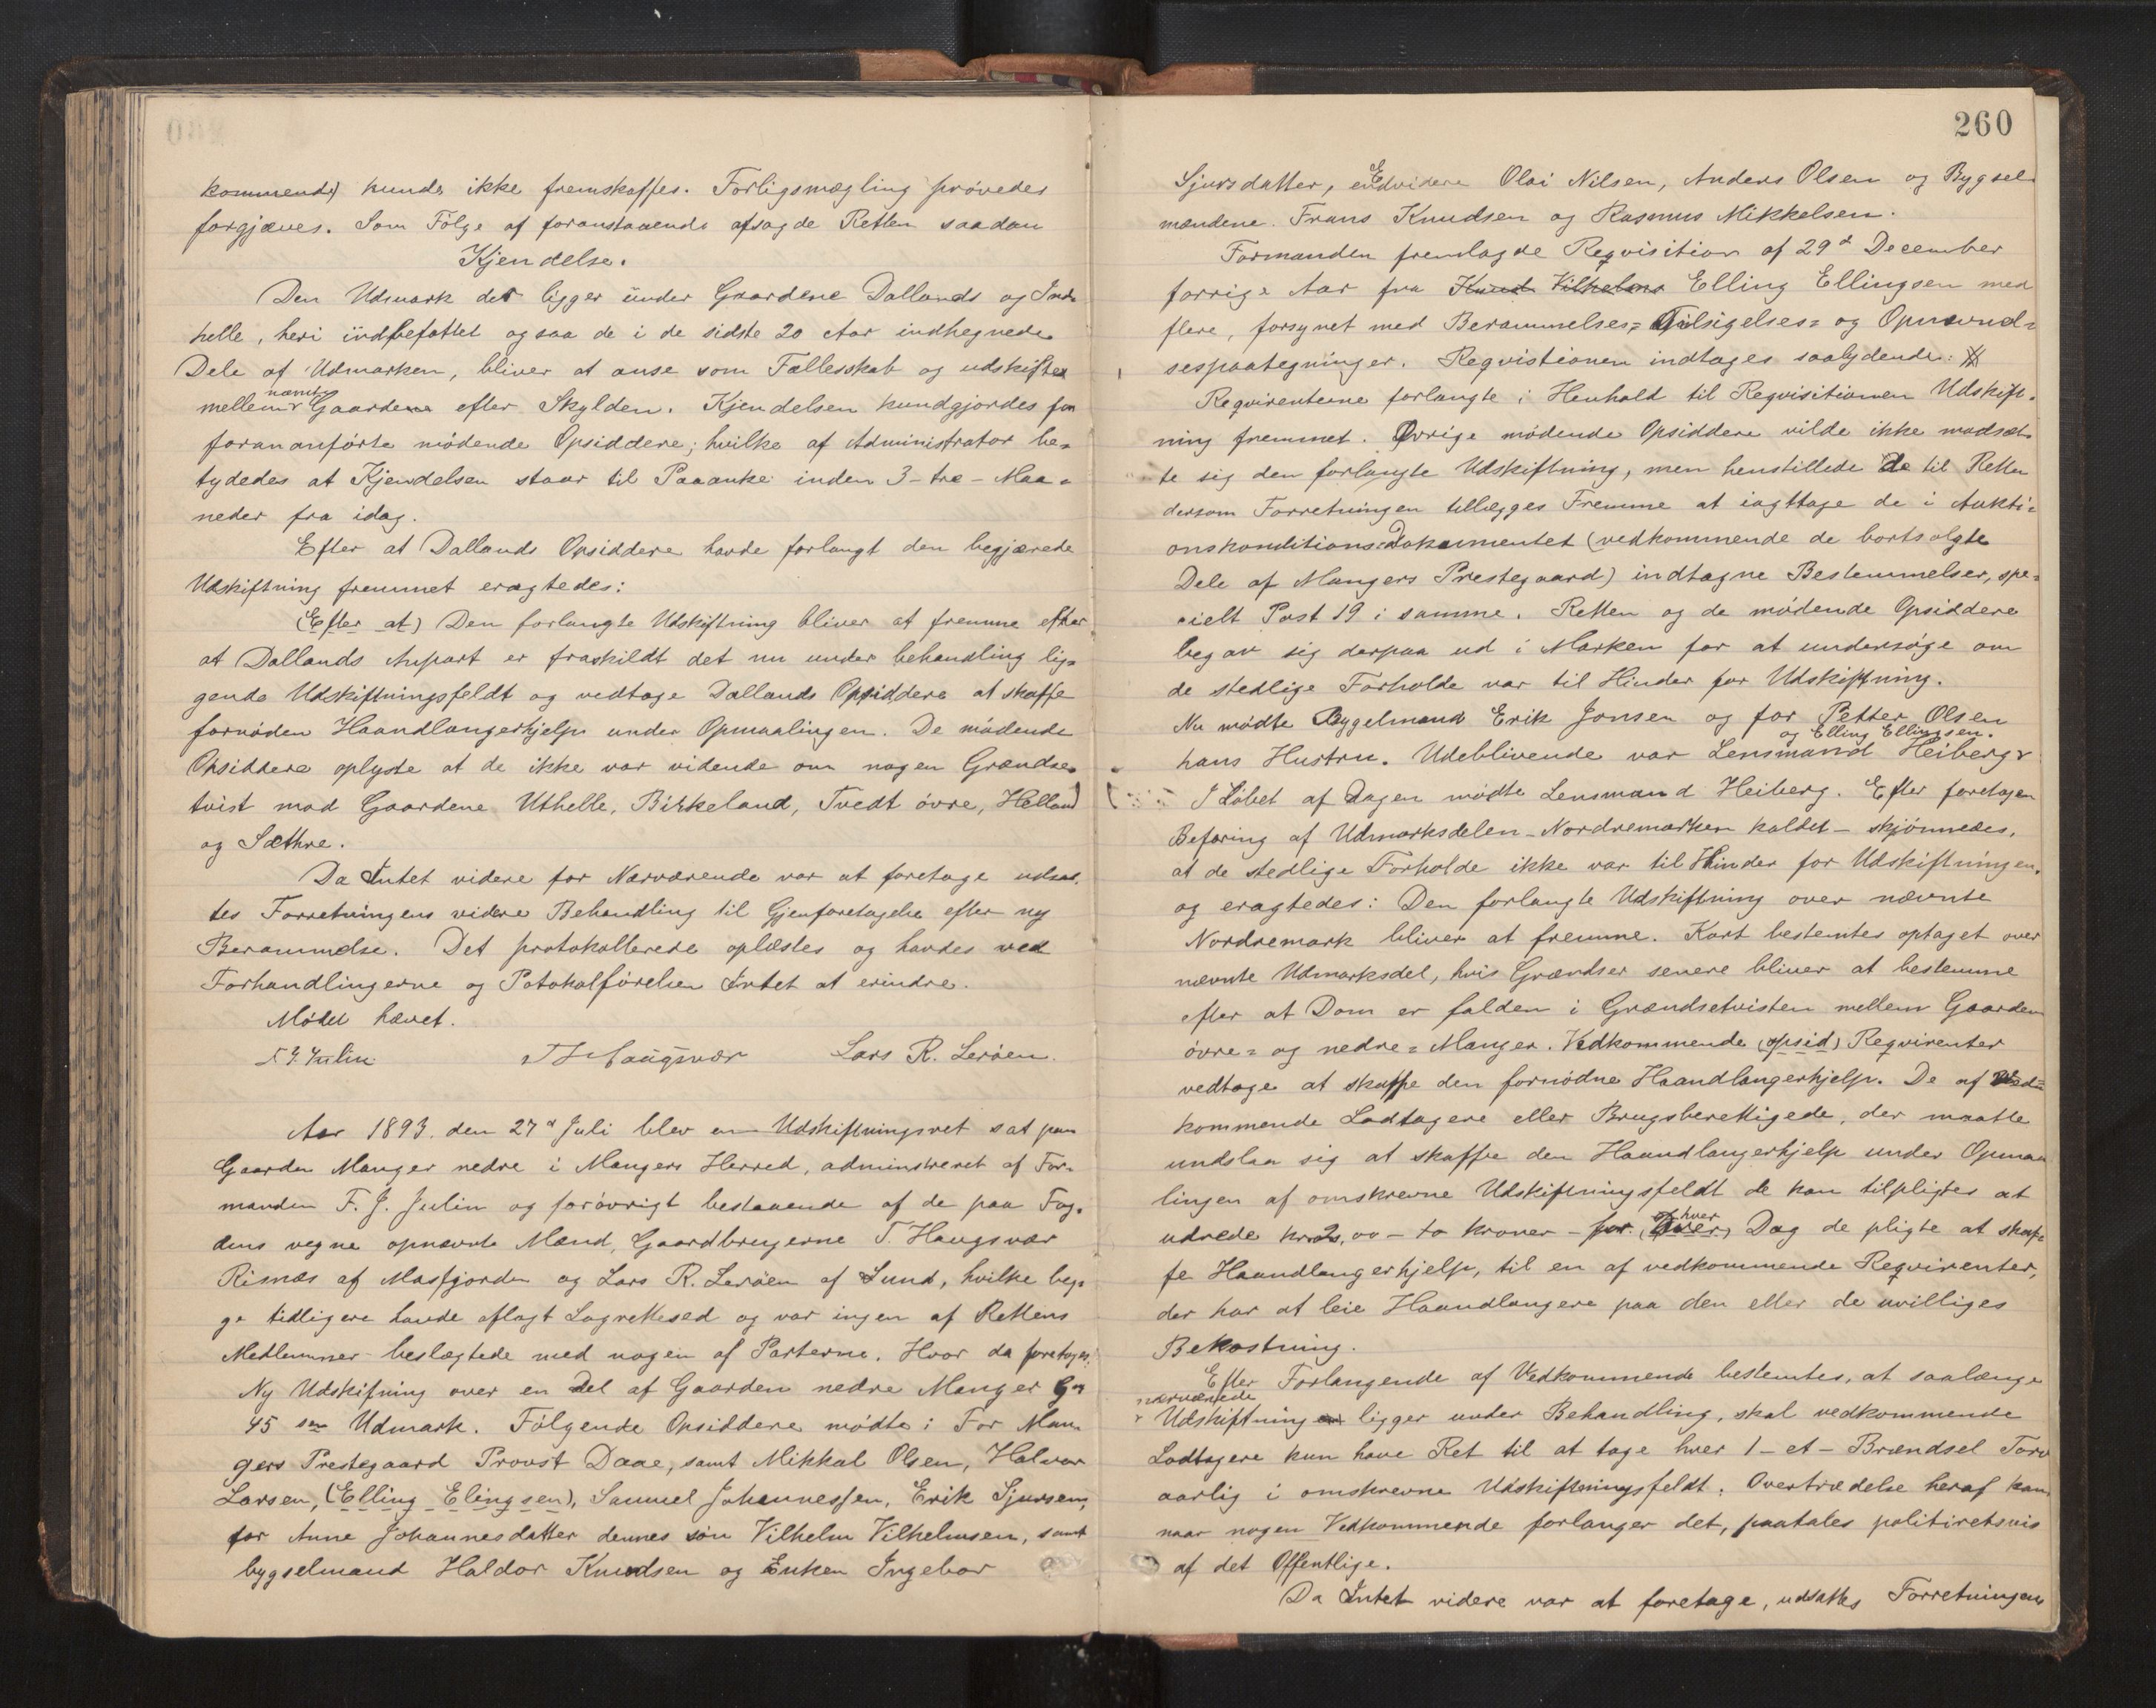 kommende) kunde ikke fremskaffes. Forligsmægling prøvedes
forgjæves. Som Følge af foranstaaende afsagde Retten saadan
Kjendelse.
Den Udmark der ligger under Gaardene Dallands og Ind-
helle, heri indbefattet ogsaa de i de sidste 20 Aar indhegnede
Dele af Udmarken, bliver at anse som Fællesskab og udskiftes
mellem nævnte Gaardene efter Skylden. Kjendelsen kundgjordes for
forananførte mødende Opsiddere; hvilke af Administrator be-
tydedes at Kjendelsen staar til Paaanke inden 3 - tre - Maa-
neder fra idag.
Efter at Dallands Opsiddere havde forlangt den begjærede
Udskiftning fremmet eragtedes:
(Efter at) Den forlangte Udskiftning bliver at fremme efter
at Dallands Anpart er fraskildt det nu under behandling lig-
gende Udskiftningsfeldt og vedtage Dallands Opsiddere at skaffe
fornøden Haandlangerhjelp under Opmaalingen. De mødende
Opsiddere oplyste at de ikke var vidende om nogen Grændse-
tvist mod Gaardene Uthelle, Birkeland, Tvedt øvre, Helland
og Sæthre.
Da Intet videre for Nærværende var at foretage udsat-
tes Forretningens videre Behandling til Gjenforetagelse efter ny
Berammelse. Det protokollerede oplæstes og havdes ved
Forhandlingerne og Potokolførelsen Intet at erindre.
Mødet hævet.
F. J. Julin T Haugsvær Lars R. Lerøen.
Aar 1893. den 27d Juli blev en Udskiftningsret sat paa
Gaarden Manger nedre i Mangers Herred, adminstreret af For-
manden F. J. Julin og forøvrigt bestaaende af de paa Fog-
dens vegne opnævnte Mænd, Gaardbrugerne T. Haugsvær
Risnæs af Masfjorden og Lars R. Lerøen af Lund, hvilke beg-
ge tidligere havde aflagt Lagrettesed og var ingen af Rettens
Medlemmer beslægtede med nogen af Parterne. Hvor da foretoges:
Ny Udskifning over en Del af Gaarden nedre Manger G
45 Udmark. Følgende Opsiddere mødte: For Man-
gers Prestegaard Provst Daae, samt Mikkal Olsen, Halvor
Larsen, (Elling Elingsen), Samuel Johannessen, Erik Sjursen,
for Anne Johannesdatter dennes søn Vilhelm Vilhelmsen, samt
bygselmand Haldor Knudsen og Enken Ingebor
260
Sjursdatter, Endvidere Olai Nilsen, Anders Olsen og Bygsel-
mændene. Frans Knudsen og Rasmus Mikkelsen.
Formanden fremlagde Reqvisition af 29d December
forrige Aar fra Knud Vilhelms Elling Ellingsen med
flere, forsynet med Berammelses= Tilsigelses= og Opnævnel=
sespaategninger. Reqvistionen indtages saalydende:
Reqvirenterne forlangte i Henhold til Reqvisitionen Udskift-
ning fremmet. Øvrige mødende Opsiddere vilde ikke modsæt-
te sig den forlangte Udskiftning, men henstillede de til Retten
dersom Forretningen tillægges Fremme at iagttage de i Aukti-
onskonditions-Dokumentet (vedkommende de bortsolgte
Dele af Mangers Prestegaard) indtagne Bestemmelser, spe-
cielt Post 19 i samme. Retten og de mødende Opsiddere
begav sig derpaa ud i Marken for at undersøge om
de stedlige Forholde var til Hinder for Udskiftning.
Nu mødte Bygelmand Erik Jonsen og for Petter Olsen
hans Hustru. Udeblivende var Lensmand Heiberg og Elling Ellingsen.
I Løbet af Dagen mødte Lensmand Heiberg. Efter foretagen
Befaring af Udmarksdelen - Nordremarken kaldet - skjønnedes,
at de stedlige Forholde ikke var til Hinder for Udskiftningen,
og eragtedes: Den forlangte Udskiftning over nævnte
Nordremark bliver at fremme. Kart bestemtes optaget over
nævnte Udmarksdel, hvis Grændser senere bliver at bestemme
efter at Dom er falden i Grændsetvisten mellem Gaarden
øvre= og nedre= Manger. Vedkommende (opsid) Reqvirenter
vedtage at skaffe den fornødne Haandlangerhjelp. De af Ved=
kommende Lodtagere eller Brugsberettigede, der maatte
undslaa sig at skaffe den Haandlangerhjelp under Opmaa
lingen af omskrevne Udskiftningsfeldt de kan tilpligtes at
udrede kr 2,00 - to kroner - for (hver) af hver Dag de pligte at skaf-
fe Haandlangerhjelp, til en af vedkommende Reqvirenter,
der har at leie Haandlangere paa den eller de uvilliges
Bekostning.
Efter Forlangende af Vedkommende bestemtes, at saalænge
nærværende Udskiftning ligger under Behandling, skal vedkommende
Lodtagere kun have Ret til at tage hver 1 - et - Brændsel Torv
aarlig i omskrevne Udskiftningsfeldt. Overtrædelse heraf kan
naar nogen Vedkommende forlanger det, paatales politiretsvis
af det Offentlige.
Da Intet videre var at foretage, udsattes Forretningens